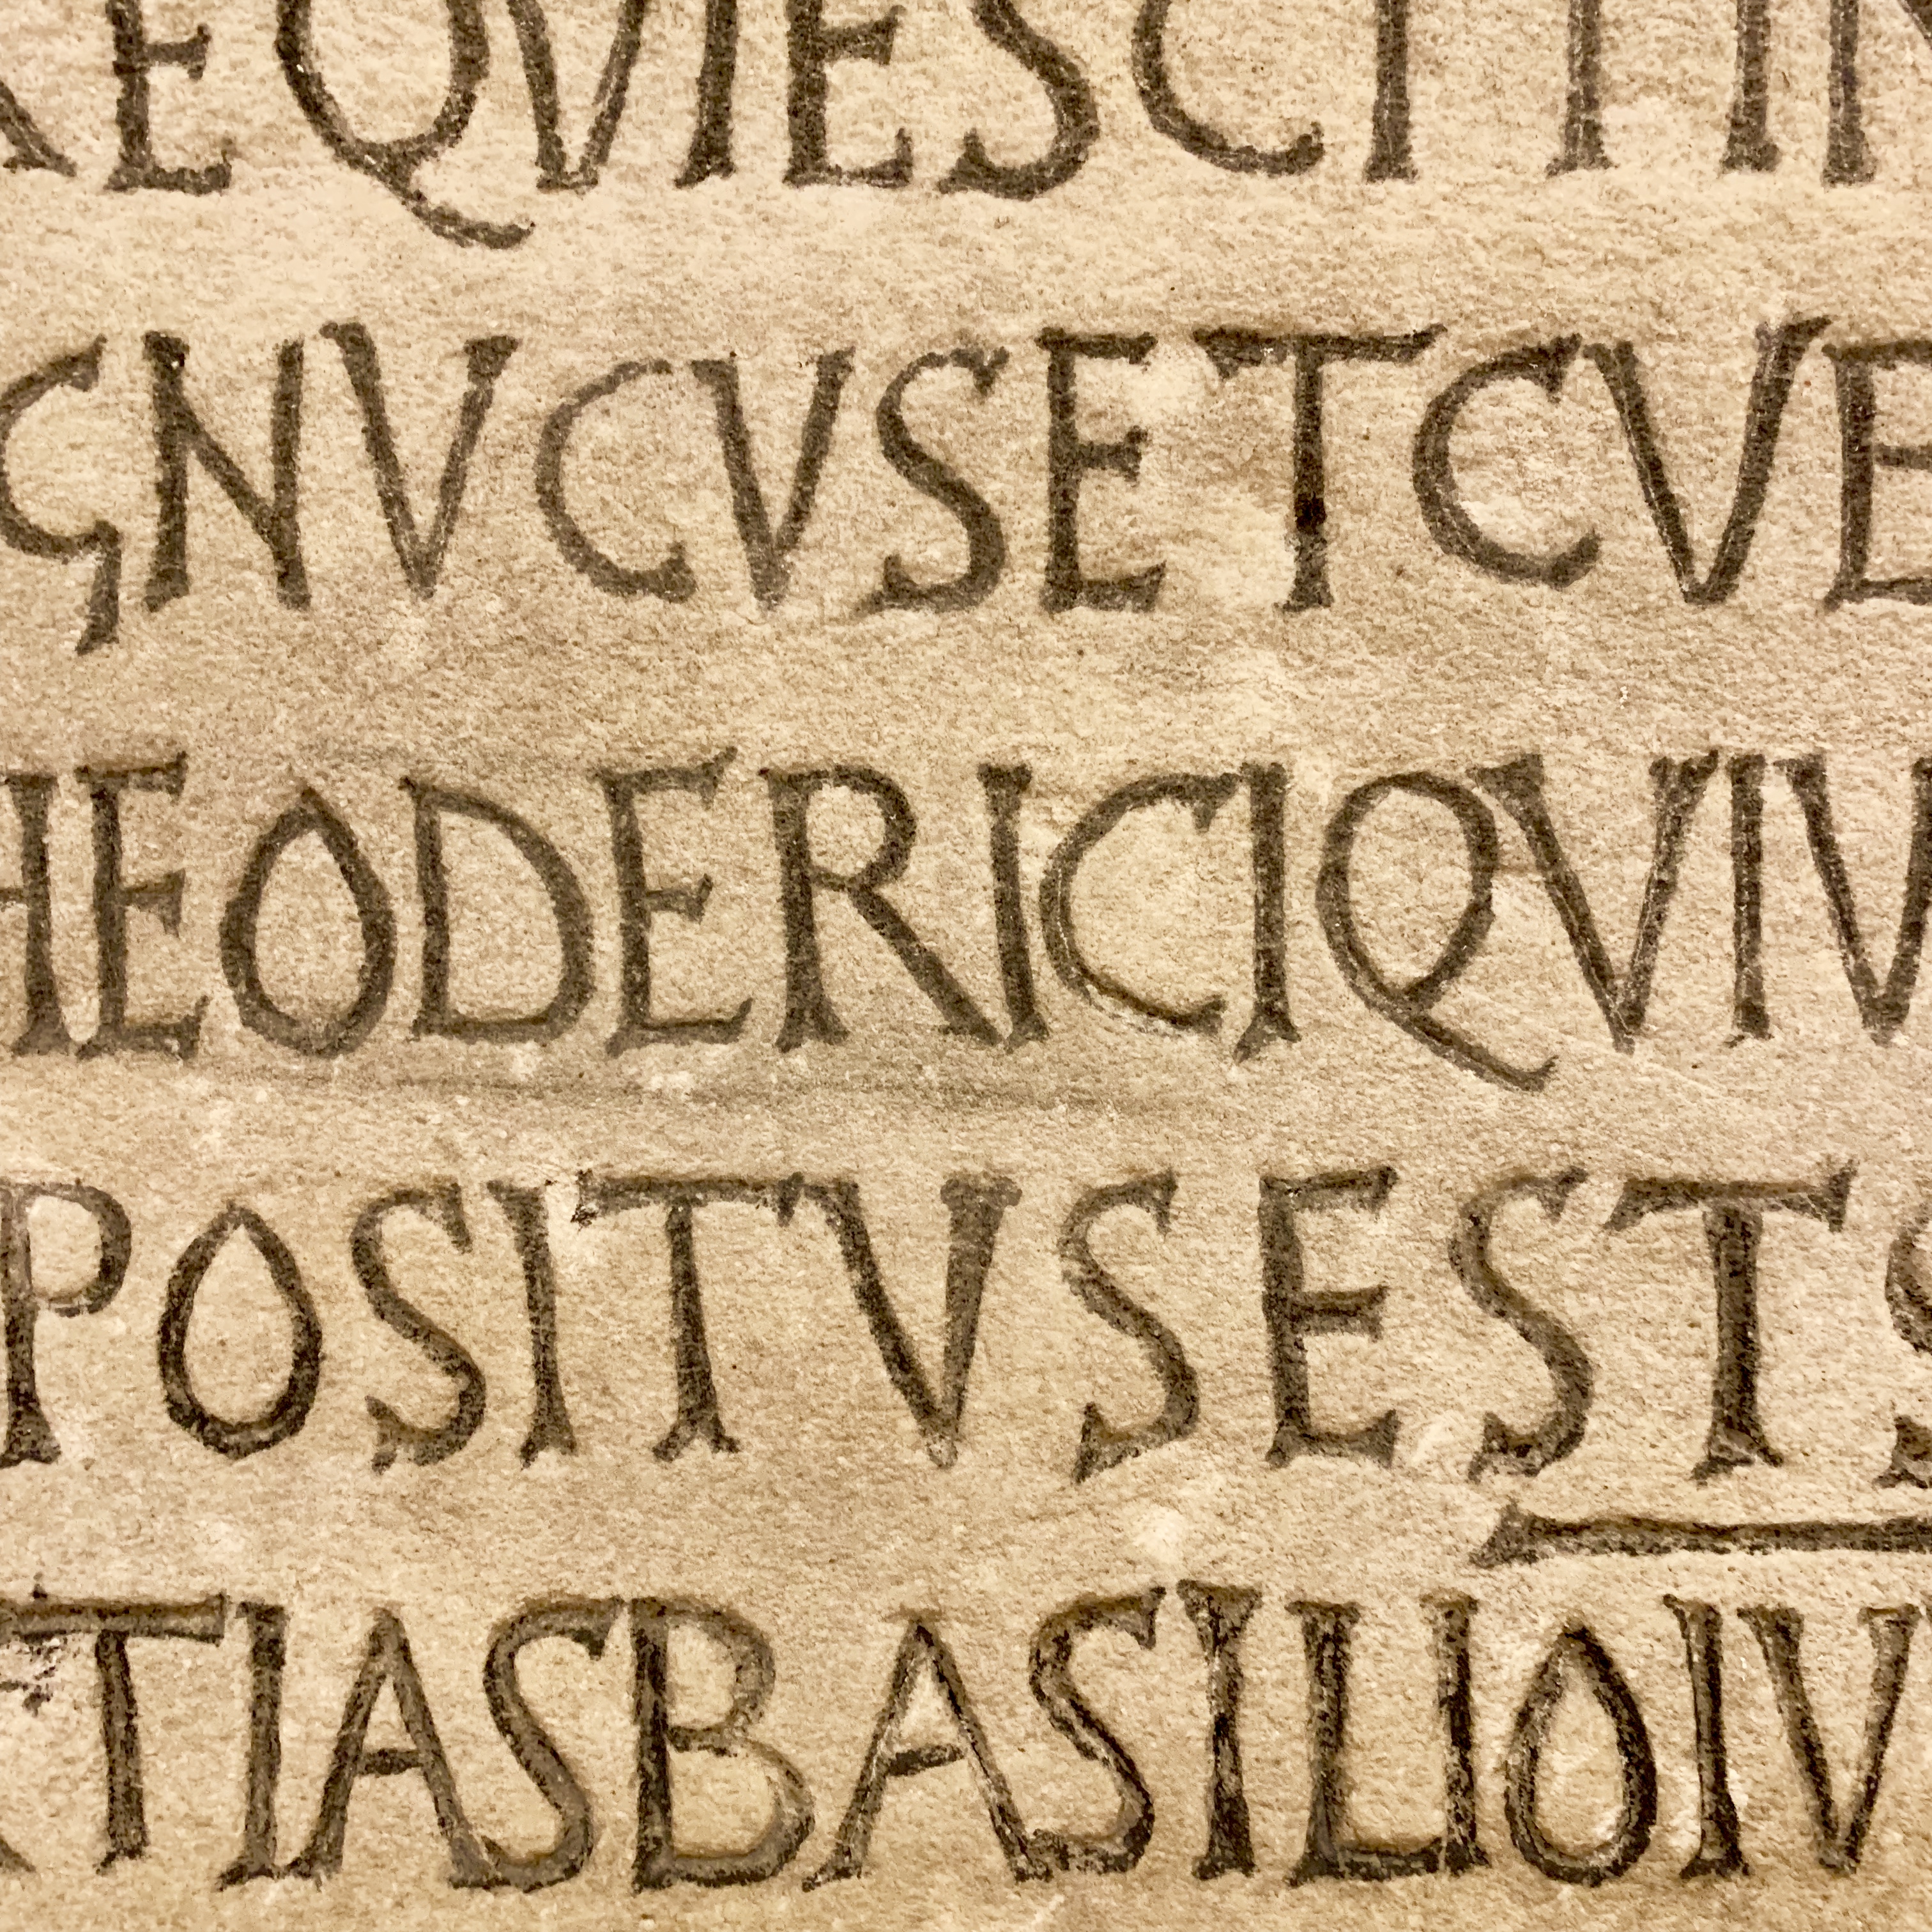 REQVIESCITIN
GNVCVSETCVB
HEODERICIQVIV
POSITVSESTS
TIASBASILIOIV